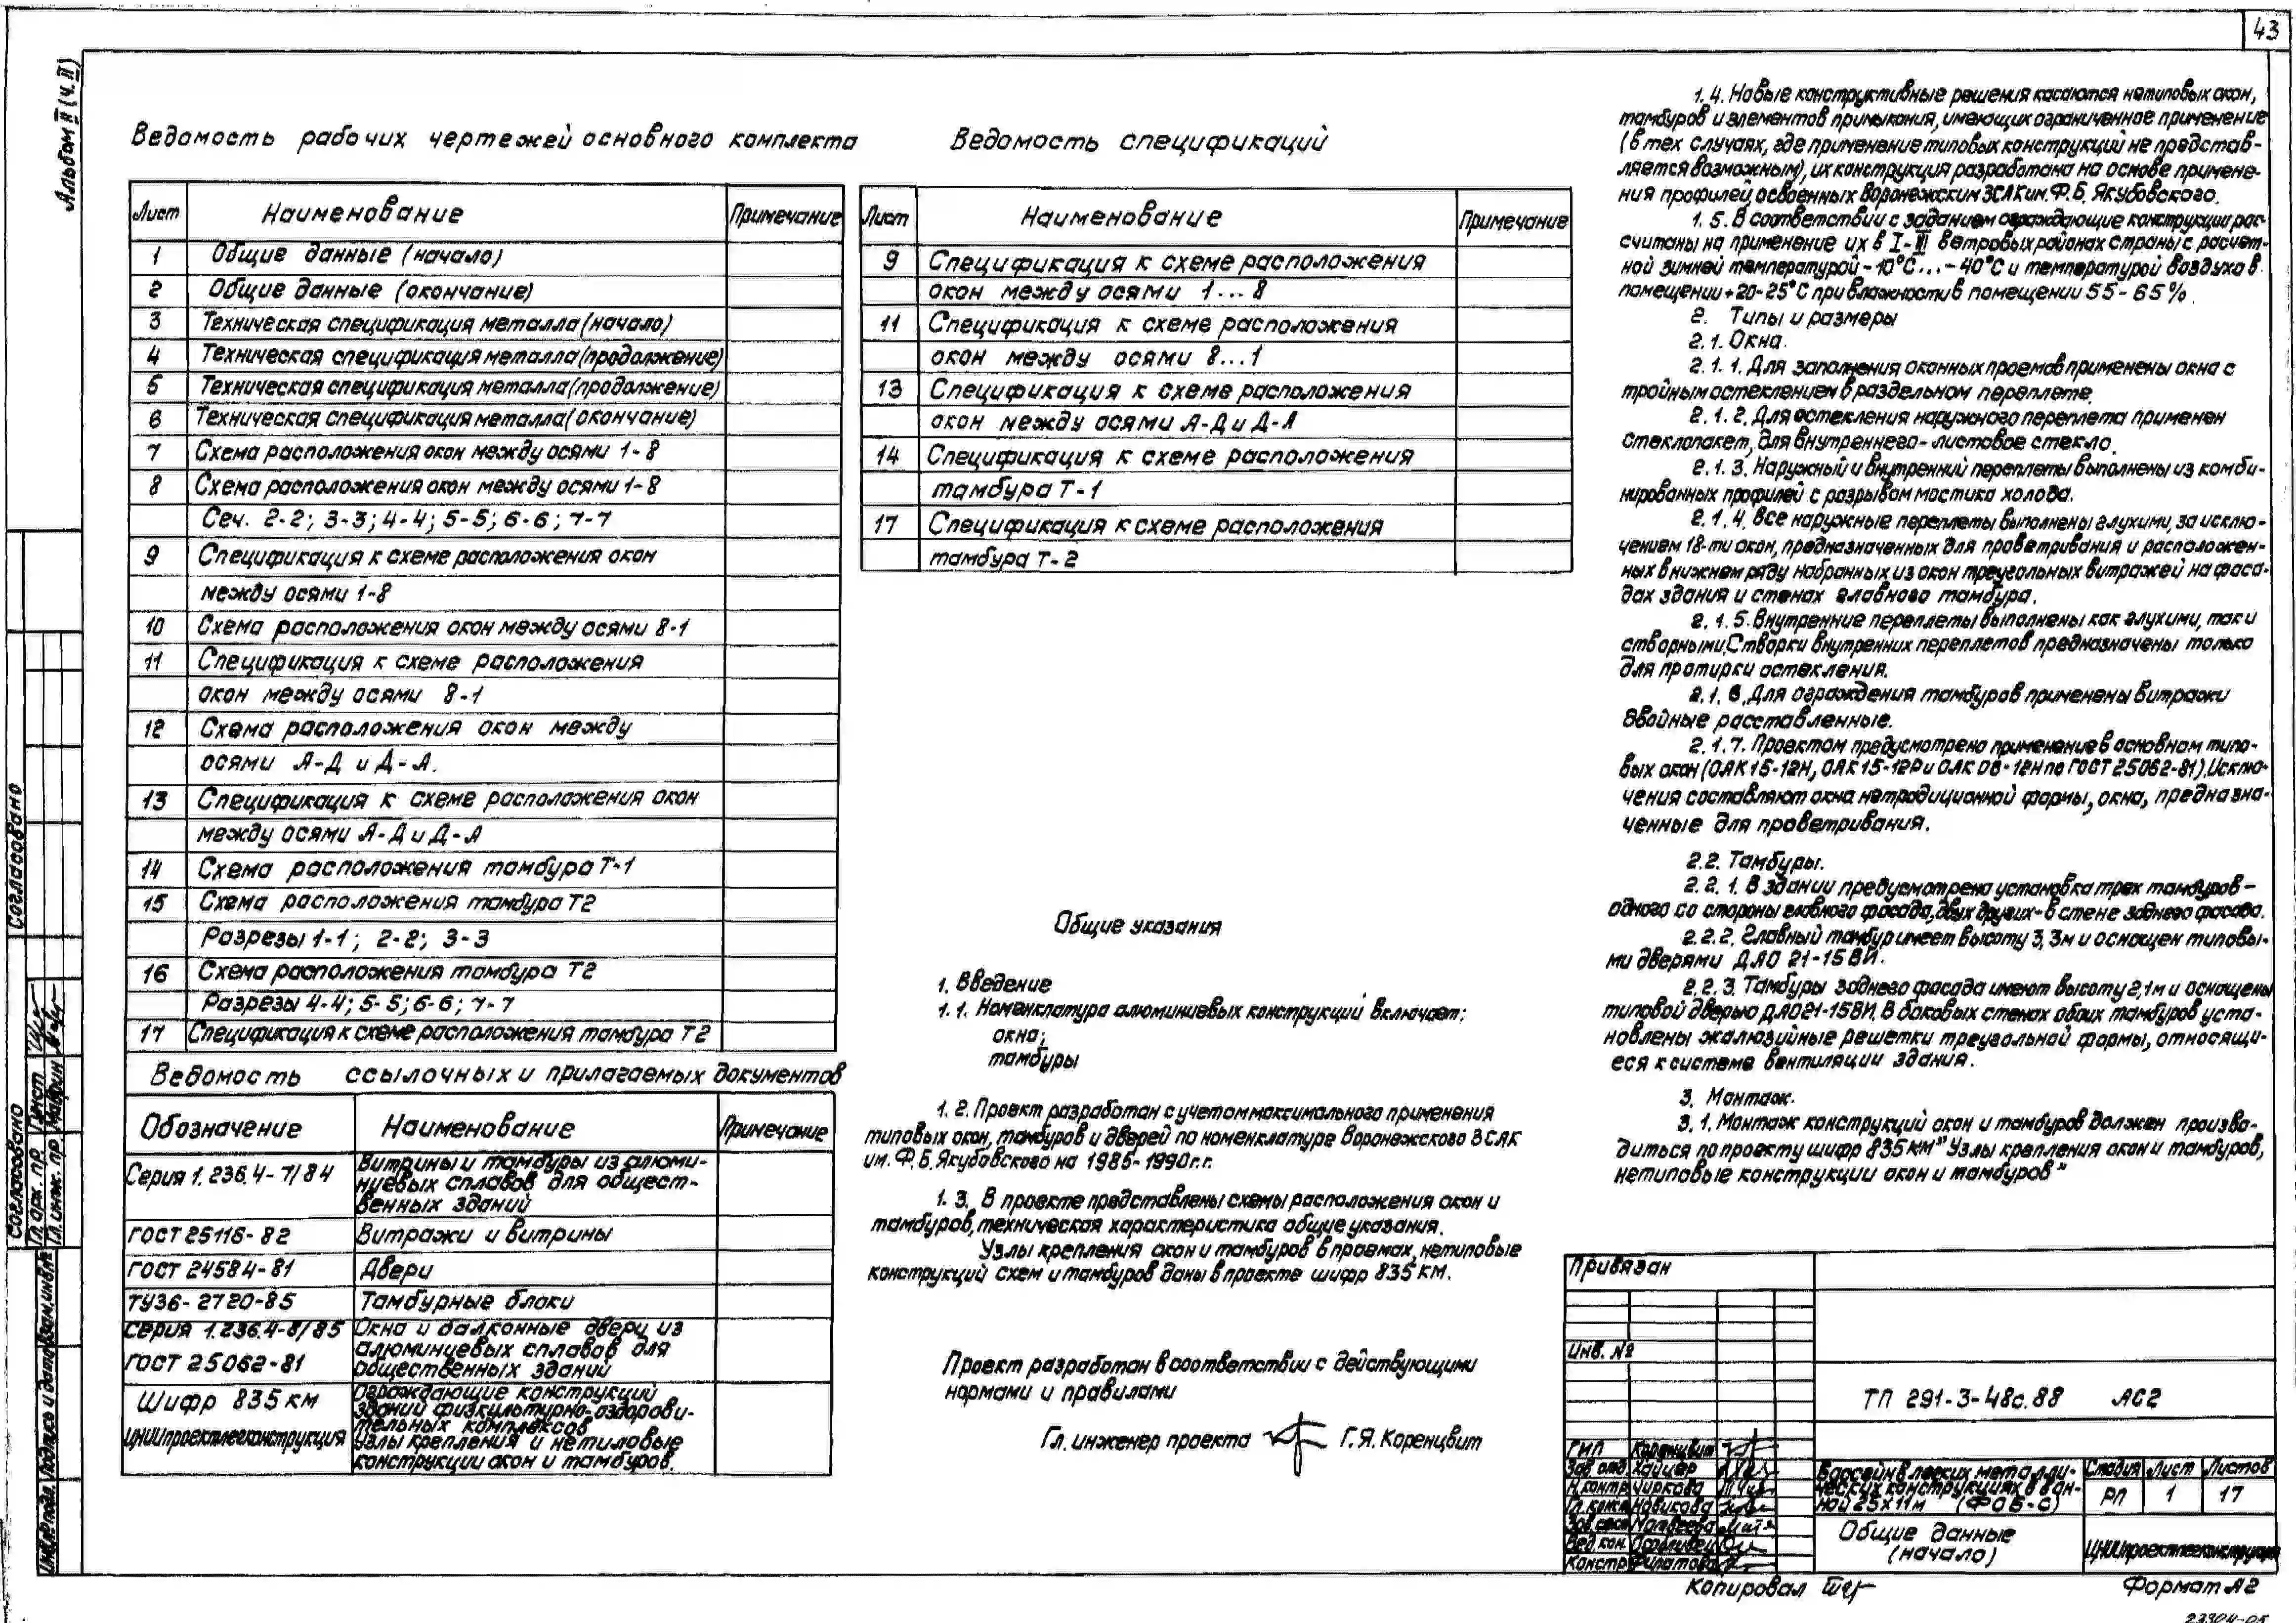 43
Альбом II (ч. II)
Ведомость рабочих чертежей основного комплекта
Лист Наименование Примечание
1 Общие данные (начало)
2 Общие данные (окончание)
3 Техническая спецификация металла (начало)
4 Техническая спецификация металла (продолжение)
5 Техническая спецификация металла (продолжение)
6 Техническая спецификация металла (окончание)
7 Схема расположения окон между осями 1-8
8 Схема расположения окон между осями 1-8
Сеч. 2-2; 3-3; 4-4; 5-5; 6-6; 7-7
9 Спецификация к схеме расположения окон
между осями 1-8
10 Схема расположения окон между осями 8-1
11 Спецификация к схеме расположения
окон между осями 8-1
12 Схема расположения окон между
осями А-Д и Д-А.
13 Спецификация к схеме расположения окон
между осями А-Д и Д-А
14 Схема расположения тамбура Т-1
15 Схема расположения тамбура Т2
Разрезы 1-1; 2-2; 3-3
16 Схема расположения тамбура Т2
Разрезы 4-4; 5-5; 6-6; 7-7
17 Спецификация к схеме расположения тамбура Т2
Ведомость ссылочных и прилагаемых документов
Обозначение Наименование Примечание
Серия 1.236.4-7/84 Витрины и тамбуры из алюми-
ниевых сплавов для общест-
венных зданий
ГОСТ 25116-82 Витражи и витрины
ГОСТ 24584-81 Двери
ТУ36-2720-85 Тамбурные блоки
Серия 1.236.4-8/85 Окна и балконные двери из
алюминиевых сплавов для
ГОСТ 25062-81 общественных зданий
Шифр 835 км Ограждающие конструкций
зданий физкультурно-оздорови-
тельных комплексов
ЦНИИпроектлегконструкция Узлы крепления и нетиповые
конструкции окон и тамбуров.
Ведомость спецификаций
Лист Наименование Примечание
9 Спецификация к схеме расположения
окон между осями 1...8
11 Спецификация к схеме расположения
окон между осями 8...1
13 Спецификация к схеме расположения
окон между осями А-Д и Д-А
14 Спецификация к схеме расположения
тамбура Т-1
17 Спецификация к схеме расположения
тамбура Т-2
Общие указания
1. Введение
1.1. Номенклатура алюминиевых конструкций включает:
окна;
тамбуры
1.2. Проект разработан с учетом максимального применения
типовых окон, тамбуров и дверей по номенклатуре Воронежского ЗСАК
им. Ф.Б. Якубовского на 1985-1990 г.г.
1.3. В проекте представлены схемы расположения окон и
тамбуров, техническая характеристика общие указания.
Узлы крепления окон и тамбуров в проемах, нетиповые
конструкций схем и тамбуров даны в проекте шифр 835 км.
Проект разработан в соответствии с действующими
нормами и правилами
Гл. инженер проекта Г.Я. Коренцвит
1.4. Новые конструктивные решения касаются нетиповых окон,
тамбуров и элементов примыкания, имеющих ограниченное применение
(в тех случаях, где применение типовых конструкций не представ-
ляется возможным), их конструкция разработана на основе примене-
ния профилей, освоенных Воронежским ЗСАК им. Ф.Б. Якубовского.
1.5. В соответствии с заданием ограждающие конструкции рас-
считаны на применение их в I-III ветровых районах страны с расчет-
ной зимней температурой -10°С...-40°С и температурой воздуха в
помещении +20-25°С при влажности в помещении 55-65%.
2. Типы и размеры
2.1. Окна.
2.1.1. Для заполнения оконных проемов применены окна с
тройным остеклением в раздельном переплете.
2.1.2. Для остекления наружного переплета применен
стеклопакет, для внутреннего - листовое стекло.
2.1.3. Наружный и внутренний переплеты выполнены из комби-
нированных профилей с разрывом мостика холода.
2.1.4. Все наружные переплеты выполнены глухими, за исклю-
чением 18-ти окон, предназначенных для проветривания и расположен-
ных в нижнем ряду набранных из окон треугольных витражей на фаса-
дах здания и стенах главного тамбура.
2.1.5. Внутренние переплеты выполнены как глухими, так и
створными. Створки внутренних переплетов предназначены только
для протирки остекления.
2.1.6. Для ограждения тамбуров применены витражи
двойные расставленные.
2.1.7. Проектом предусмотрено применение в основном типо-
вых окон (ОАК 15-12Н, ОАК 15-12Р и ОАК 06-12Н по ГОСТ 25062-81). Исклю-
чения составляют окна нетрадиционной формы, окна, предназна-
ченные для проветривания.
2.2. Тамбуры.
2.2.1. В здании предусмотрена установка трех тамбуров -
одного со стороны главного фасада, двух других - в стене заднего фасада.
2.2.2. Главный тамбур имеет высоту 3,3м и оснащен типовы-
ми дверями ДАО 21-15ВЙ.
2.2.3. Тамбуры заднего фасада имеют высоту 2,1м и оснащены
типовой дверью ДАО21-15ВН. В боковых стенах обоих тамбуров уста-
новлены жалюзийные решетки треугольной формы, относящи-
еся к системе вентиляции здания.
3. Монтаж.
3.1. Монтаж конструкций окон и тамбуров должен произво-
диться по проекту шифр 835 км "Узлы крепления окон и тамбуров,
нетиповые конструкции окон и тамбуров"
Привязан
Инв. №
ТП 291-3-48с.88 АС2
ГИП Коренцвит
Зав. отд. Хайцер
Н. контр. Чиркова
Новикова
Матвеева
Вед. кон.
Констр. Филатова
Бассейн в легких металли-
ческих конструкциях в ван-
ной 25х11м (ФОБ-С)
Стадия Лист Листов
РП 1 17
Общие данные
(начало)
ЦНИИпроектлегконструкция
Копировал
Формат А2
23304-05
Согласовано
Согласовано
Гл. арх. пр.
Гл. инж. пр. Маврин
Взам. инв. №
Подпись и дата
Инв. № подл.